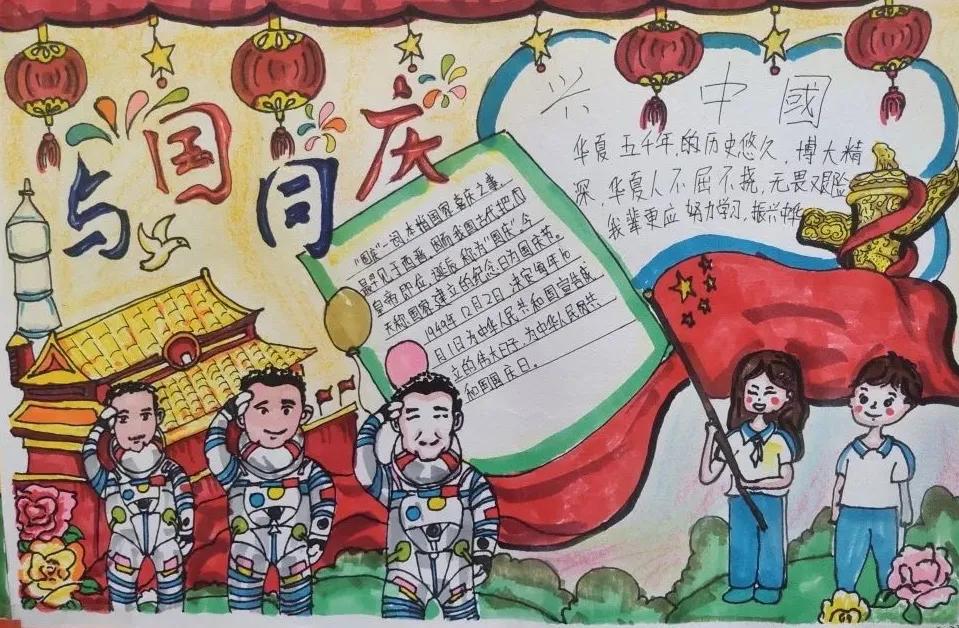 与国同庆
兴中國
华夏五千年,的历史悠久,博大精
深,华夏人不屈不挠,无畏艰险
我辈更应努力学习,振兴中华
"国庆"一词本指国家喜庆之事,
最早见于西晋,因而我国古代把
皇帝即位,诞辰称为"国庆",今
天称国家建立的纪念日为国庆节。
1949年12月2日,决定每年10
月1日为中华人民共和国宣告成
立的伟大日子,为中华人民共
和国国庆日。